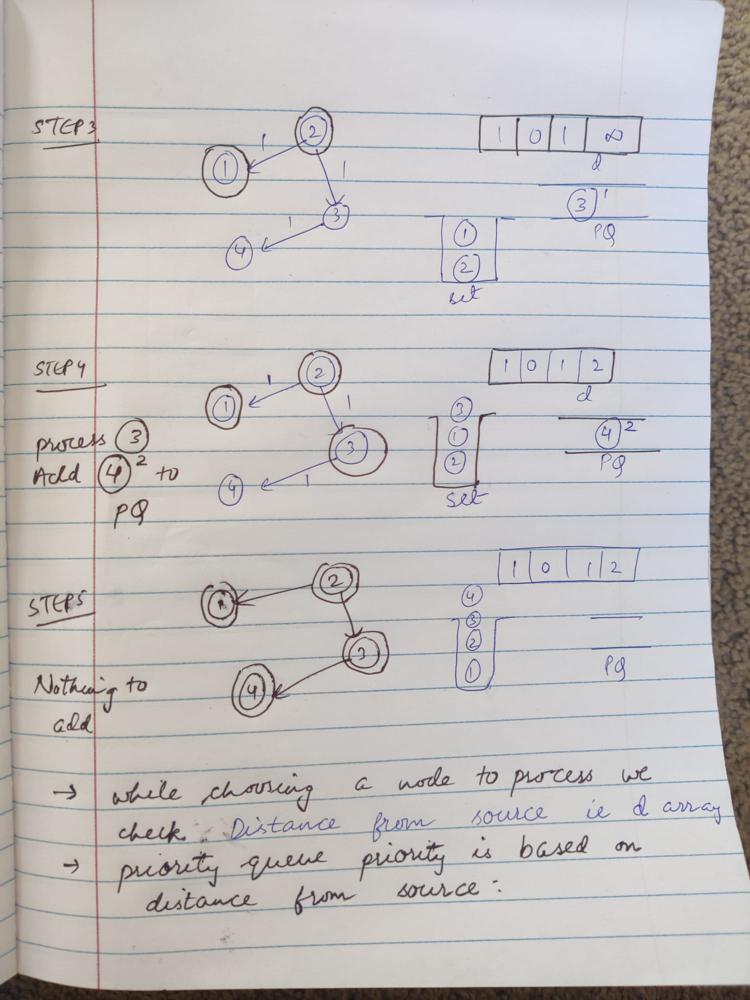 STEP3
2
1
1
1
1
3
4
1 0 1 ∞
d
3 1
PQ
1
2
set
STEP4
process 3
Add 4 2 to
PQ
2
1
1
1
3
1
4
1 0 1 2
d
3
1
2
set
4 2
PQ
STEP5
Nothing to
add
2
3
4
1 0 1 2
4
3
2
1
PQ
→ while choosing a node to process we
check. Distance from source ie d array
→ priority queue priority is based on
distance from source :